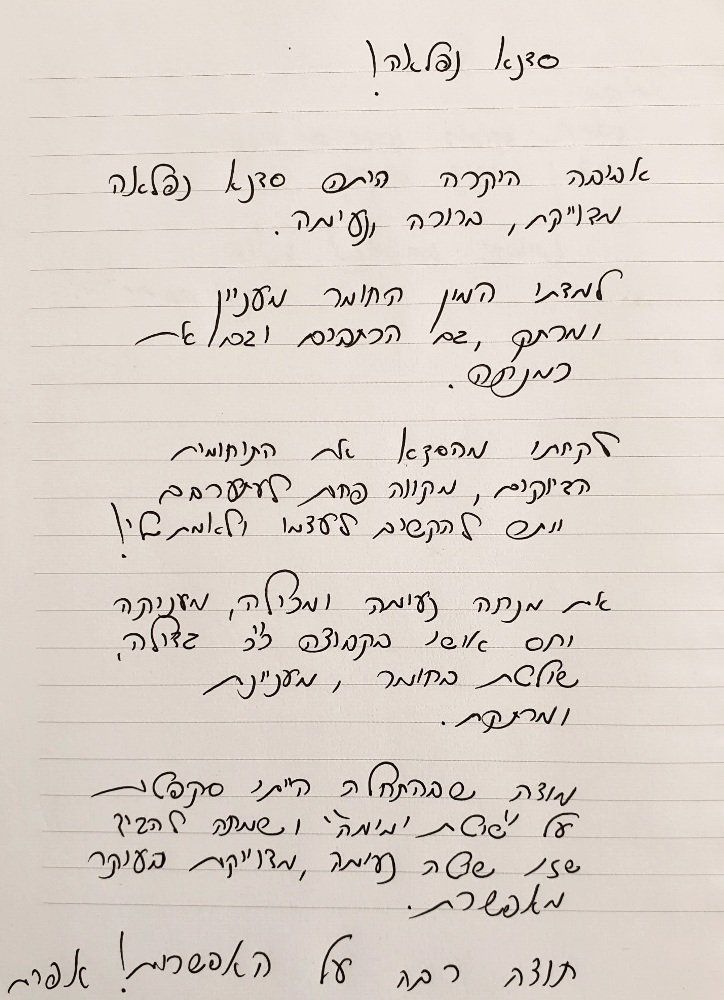 סדנא נפלאה!
אביבה היקרה היתה סדנא נפלאה
מדוייקת, ברורה ונעימה.
למדתי המון החומר מעניין
ומרתק, גם הכתבים וגם את
כמנחה.
לקחתי מהסדנא את התיחומית
הדיוקים, מקווה פחות להתערבב
ויותר להקשיב לעצמי ולאמת שלי!
את מנחה נעימה ומכילה, מעניקה
יחס אישי בקבוצה כ"כ גדולה,
שולטת בחומר, מעניינת
ומרתקת.
מודה שבהתחלה הייתי סקפטית
על "שיטת ימימה" ושמחה להגיד
שזו שיטה נעימה, מדוייקת בעיקר
מאפשרת.
תודה רבה על האפשרות! אפרת